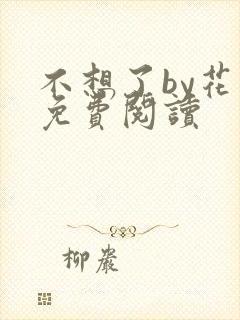 不想了by花
免費閱讀
柳巖